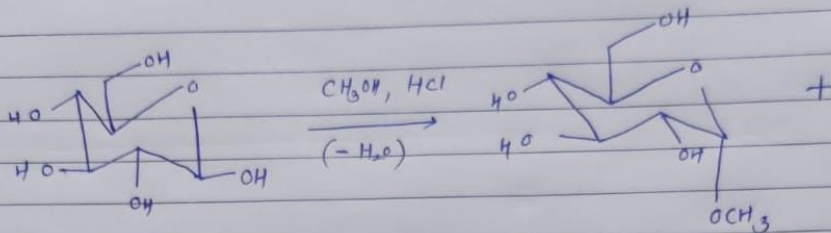 OH
O
HO
HO
OH
OH
CH3OH, HCl
(- H2O)
OH
O
HO
HO
OH
OCH3
+